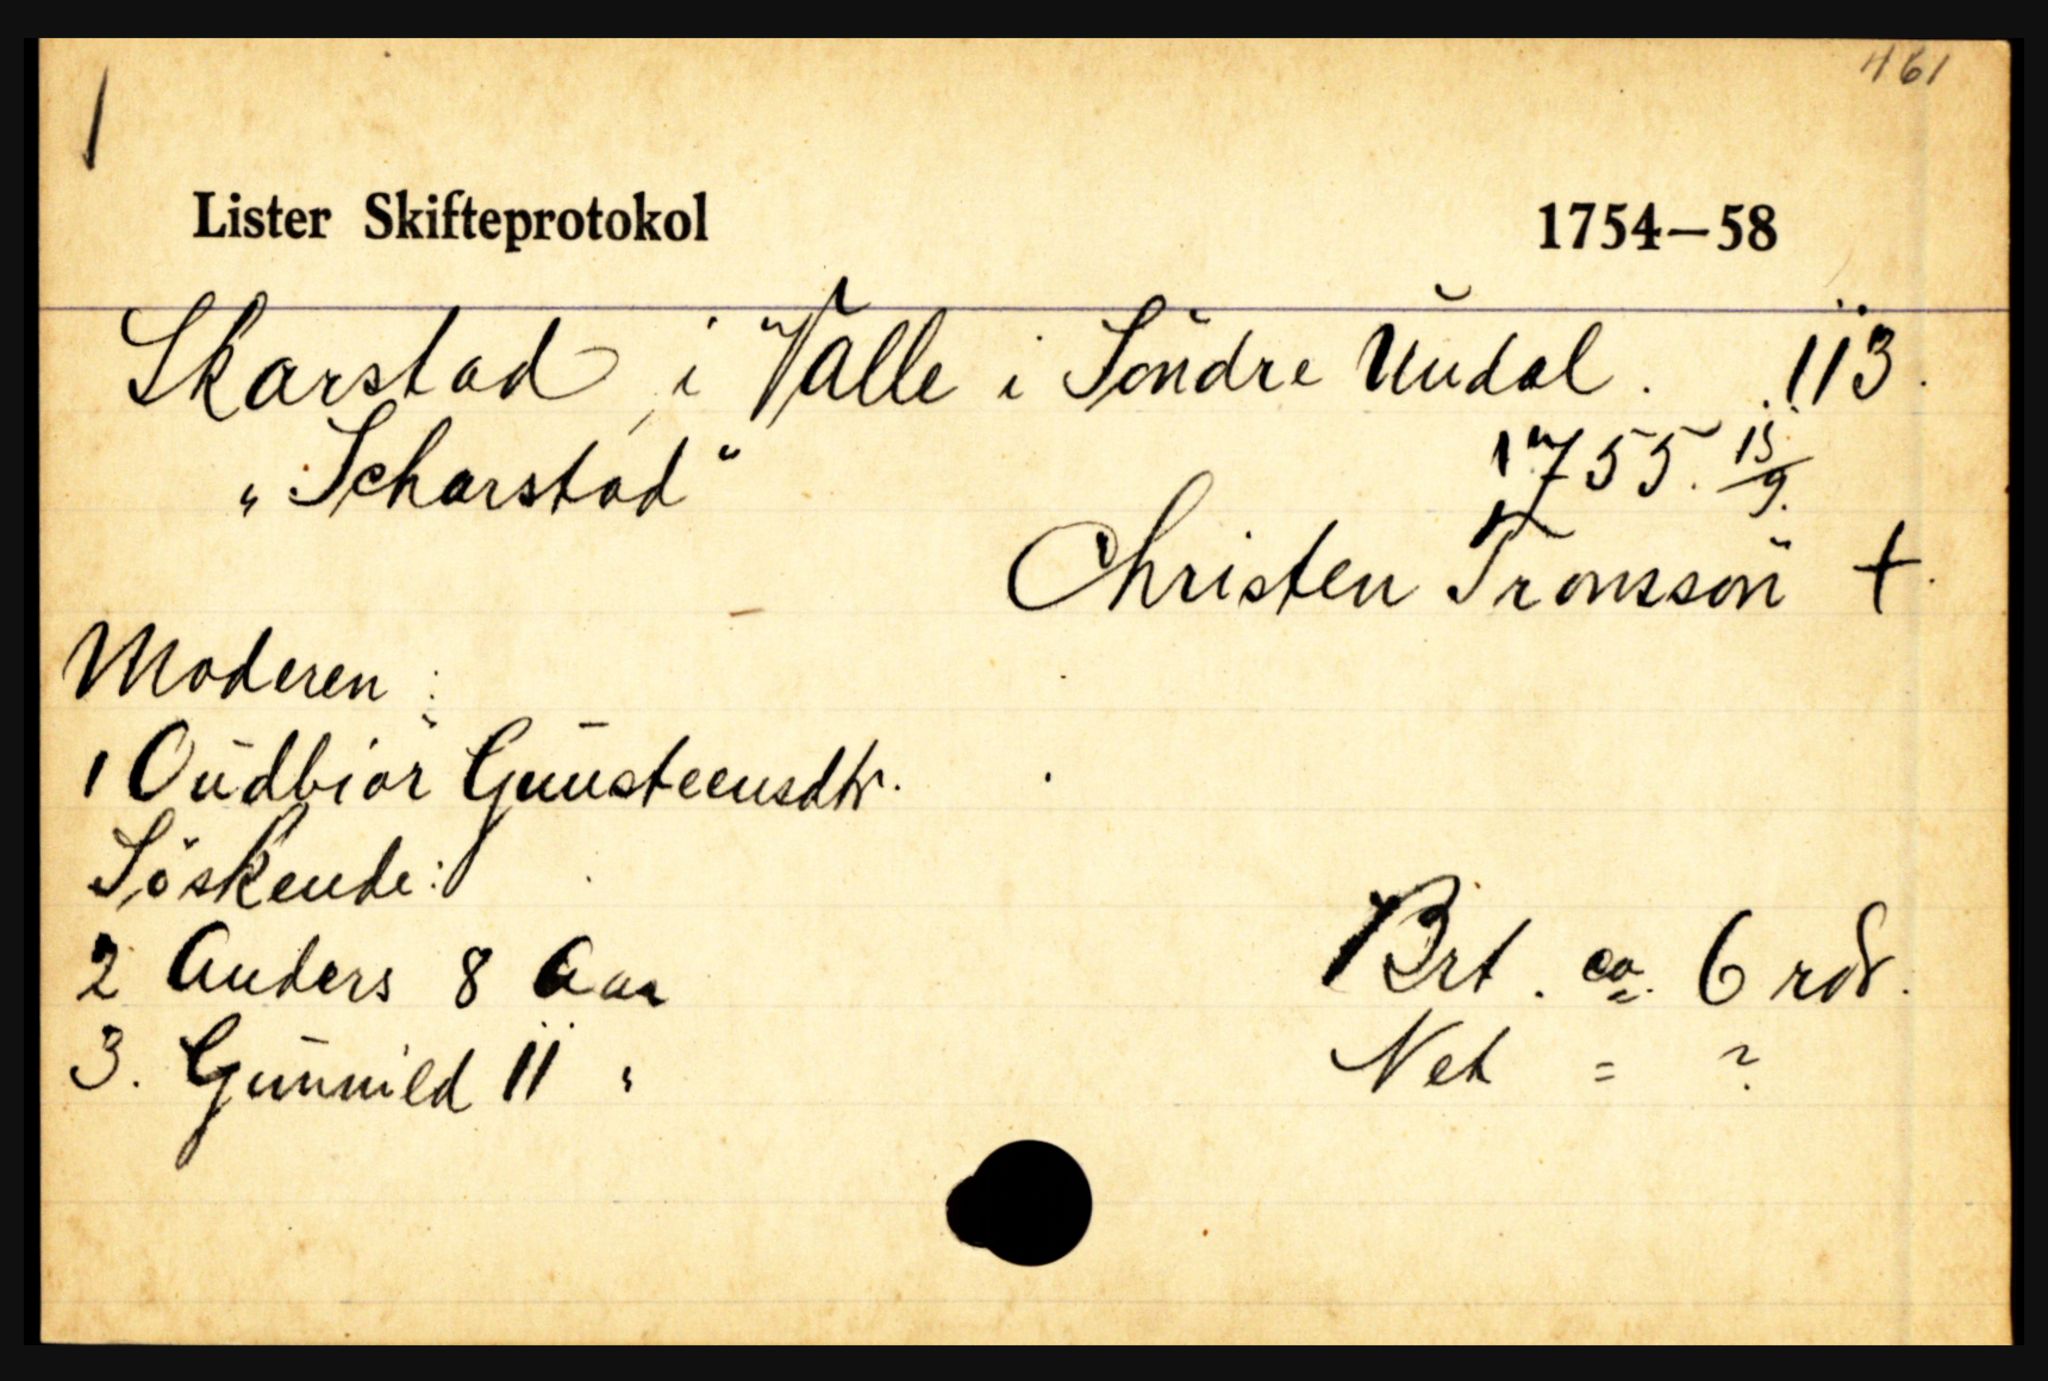 461
Lister Skifteprotokol 1754—58
Skarstad i Valle i Söndre Undal. 113.
„Scharstad" 1755. 15/9.
Christen Tronssön +.
Moderen:
1 Oudbiör Gunsteensdtr.
Söskende:
2 Anders 8 Aar Brt. ca. 6 rdr.
3. Gunnild 11 " Net = ?